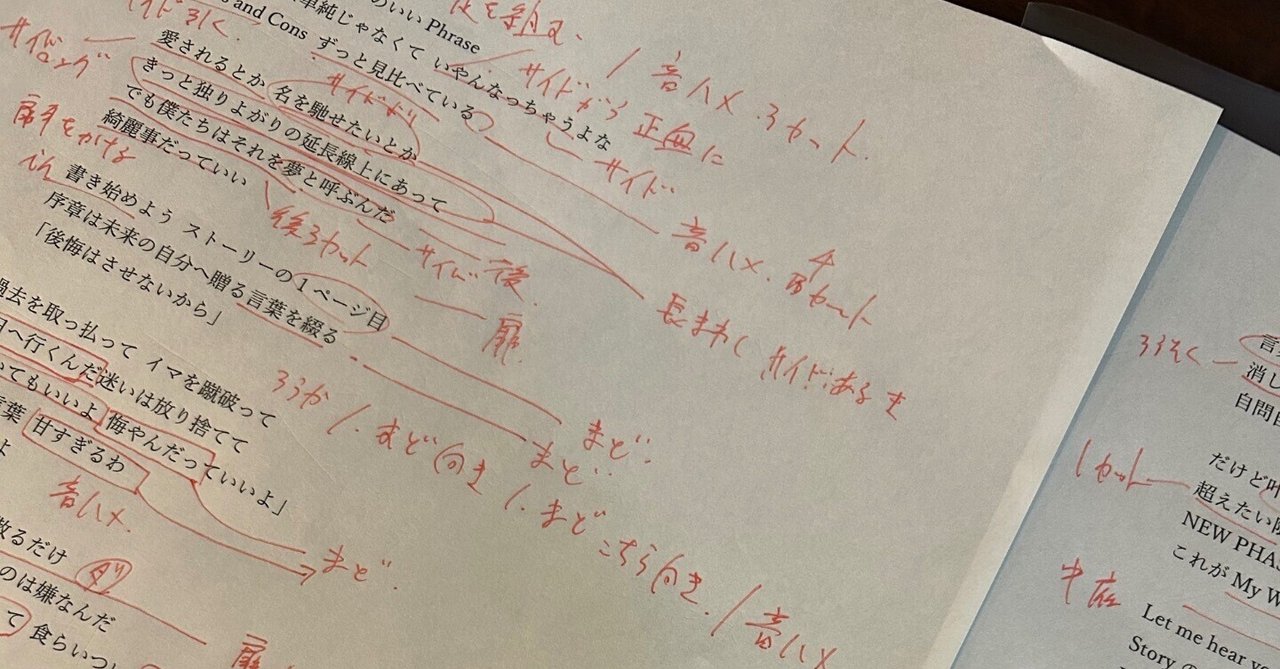 のいい Phrase
足を組む、
単純じゃなくて いやんなっちゃうよな
s and Cons ずっと見比べている
サイド引く
サイドから正面に
/ 音ハメ.3カット
サイドロング
愛されるとか 名を馳せたいとか
サイド
きっと独りよがりの延長線上にあって
でも僕たちはそれを夢と呼ぶんだ
綺麗事だっていい
音ハメ.3カット
後3カット
サイド 後.
扉.
長まわし サイドあるき
書き始めよう ストーリーの1ページ目
序章は未来の自分へ贈る言葉を綴る
「後悔はさせないから」
まど.
まど.
過去を取っ払って イマを蹴破って
へ行くんだ迷いは放り捨てて
てもいいよ 悔やんだっていいよ」
言葉 甘すぎるわ
よ
音ハメ.
まど.
ろうか /. まど向き /. まど こちら向き. / 音ハメ
散るだけ
のは嫌なんだ
て 食らいつい
扉
ろうそく
言
消し
自問自
1カット
だけど叶
超えたい
NEW PHAS
これが My W
中庭
Let me hear yo
Story